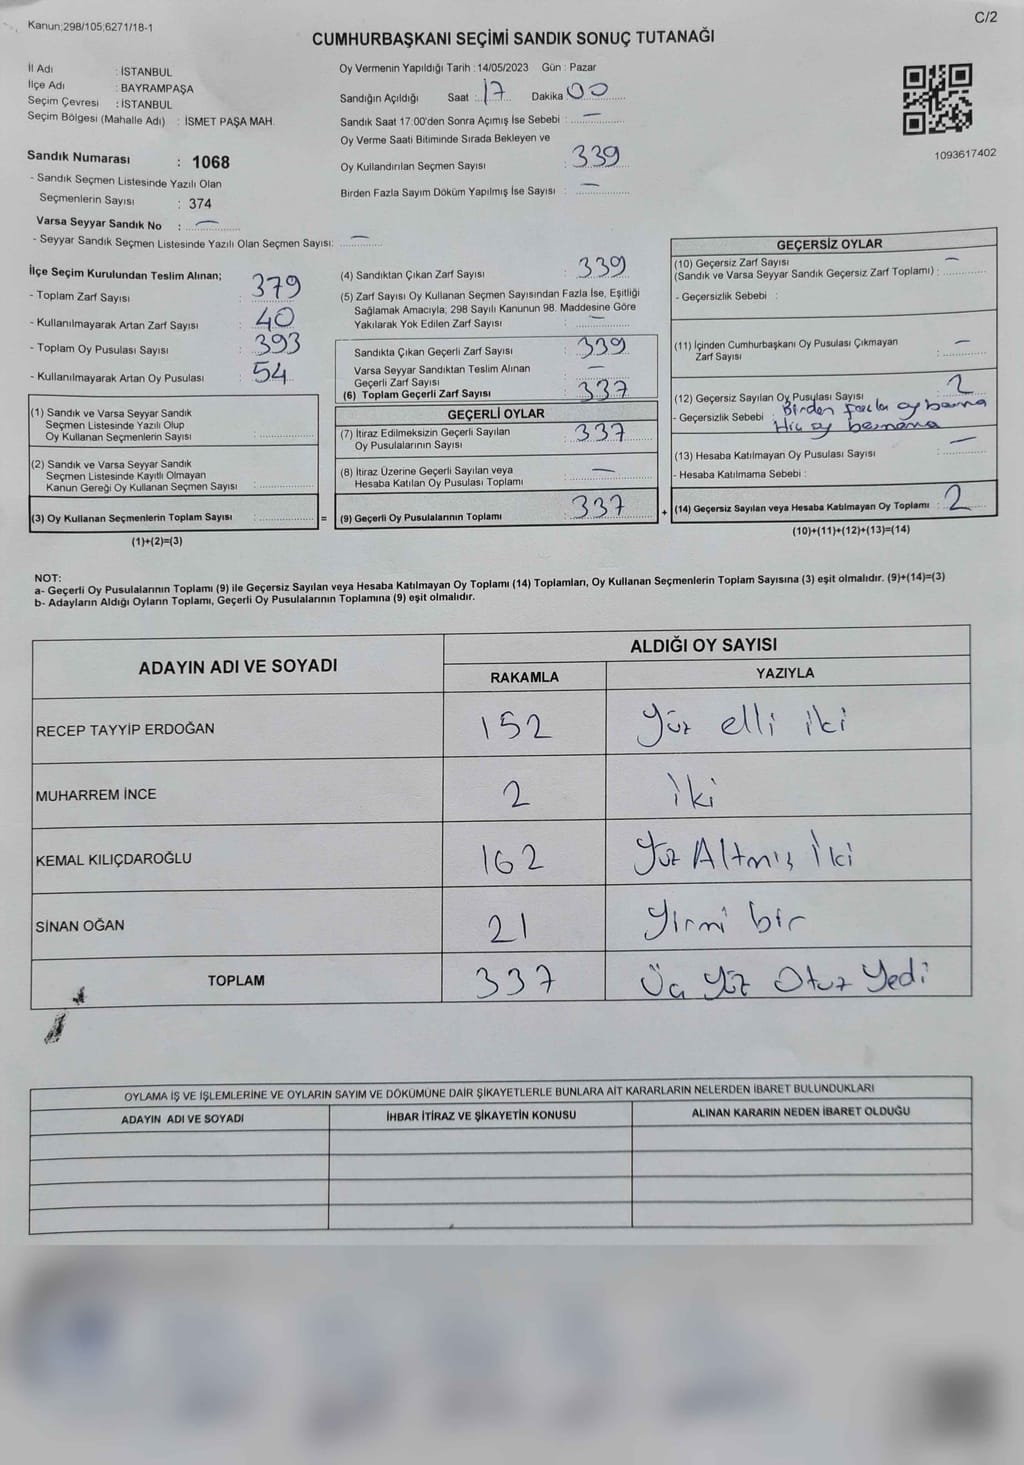 Kanun;298/105;6271/18-1
C/2
CUMHURBAŞKANI SEÇİMİ SANDIK SONUÇ TUTANAĞI
İl Adı : İSTANBUL
İlçe Adı : BAYRAMPAŞA
Seçim Çevresi : İSTANBUL
Seçim Bölgesi (Mahalle Adı) : İSMET PAŞA MAH.
Sandık Numarası : 1068
- Sandık Seçmen Listesinde Yazılı Olan
Seçmenlerin Sayısı : 374
Varsa Seyyar Sandık No : —
- Seyyar Sandık Seçmen Listesinde Yazılı Olan Seçmen Sayısı: —
Oy Vermenin Yapıldığı Tarih : 14/05/2023 Gün : Pazar
Sandığın Açıldığı Saat : 17 Dakika 00
Sandık Saat 17:00'den Sonra Açımış İse Sebebi : —
Oy Verme Saati Bitiminde Sırada Bekleyen ve
Oy Kullandırılan Seçmen Sayısı : 339
Birden Fazla Sayım Döküm Yapılmış İse Sayısı : —
1093617402
İlçe Seçim Kurulundan Teslim Alınan;
- Toplam Zarf Sayısı : 379
- Kullanılmayarak Artan Zarf Sayısı : 40
- Toplam Oy Pusulası Sayısı : 393
- Kullanılmayarak Artan Oy Pusulası : 54
(1) Sandık ve Varsa Seyyar Sandık
Seçmen Listesinde Yazılı Olup
Oy Kullanan Seçmenlerin Sayısı :
(2) Sandık ve Varsa Seyyar Sandık
Seçmen Listesinde Kayıtlı Olmayan
Kanun Gereği Oy Kullanan Seçmen Sayısı :
(3) Oy Kullanan Seçmenlerin Toplam Sayısı : =
(1)+(2)=(3)
(4) Sandıktan Çıkan Zarf Sayısı : 339
(5) Zarf Sayısı Oy Kullanan Seçmen Sayısından Fazla İse, Eşitliği
Sağlamak Amacıyla; 298 Sayılı Kanunun 98. Maddesine Göre
Yakılarak Yok Edilen Zarf Sayısı : —
Sandıkta Çıkan Geçerli Zarf Sayısı : 339
Varsa Seyyar Sandıktan Teslim Alınan
Geçerli Zarf Sayısı : —
(6) Toplam Geçerli Zarf Sayısı : 337
GEÇERLİ OYLAR
(7) İtiraz Edilmeksizin Geçerli Sayılan
Oy Pusulalarının Sayısı : 337
(8) İtiraz Üzerine Geçerli Sayılan veya
Hesaba Katılan Oy Pusulası Toplamı : —
(9) Geçerli Oy Pusulalarının Toplamı : 337 +
GEÇERSİZ OYLAR
(10) Geçersiz Zarf Sayısı
(Sandık ve Varsa Seyyar Sandık Geçersiz Zarf Toplamı) : —
- Geçersizlik Sebebi :
(11) İçinden Cumhurbaşkanı Oy Pusulası Çıkmayan
Zarf Sayısı : —
(12) Geçersiz Sayılan Oy Pusulası Sayısı : 2
- Geçersizlik Sebebi : Birden fazla oy basma
Hiç oy basmama
(13) Hesaba Katılmayan Oy Pusulası Sayısı : —
- Hesaba Katılmama Sebebi :
(14) Geçersiz Sayılan veya Hesaba Katılmayan Oy Toplamı : 2
(10)+(11)+(12)+(13)=(14)
NOT:
a- Geçerli Oy Pusulalarının Toplamı (9) ile Geçersiz Sayılan veya Hesaba Katılmayan Oy Toplamı (14) Toplamları, Oy Kullanan Seçmenlerin Toplam Sayısına (3) eşit olmalıdır. (9)+(14)=(3)
b- Adayların Aldığı Oyların Toplamı, Geçerli Oy Pusulalarının Toplamına (9) eşit olmalıdır.
ADAYIN ADI VE SOYADI
ALDIĞI OY SAYISI
RAKAMLA YAZIYLA
RECEP TAYYİP ERDOĞAN 152 Yüz elli iki
MUHARREM İNCE 2 iki
KEMAL KILIÇDAROĞLU 162 Yüz Altmış İki
SİNAN OĞAN 21 Yirmi bir
TOPLAM 337 Üç Yüz Otuz Yedi
OYLAMA İŞ VE İŞLEMLERİNE VE OYLARIN SAYIM VE DÖKÜMÜNE DAİR ŞİKAYETLERLE BUNLARA AİT KARARLARIN NELERDEN İBARET BULUNDUKLARI
ADAYIN ADI VE SOYADI İHBAR İTİRAZ VE ŞİKAYETİN KONUSU ALINAN KARARIN NEDEN İBARET OLDUĞU